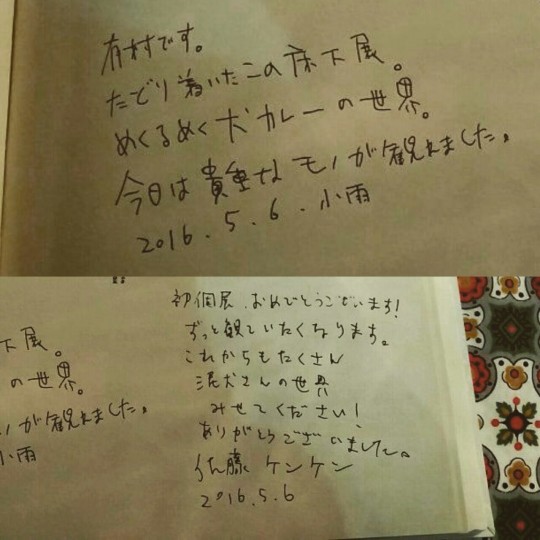 有村です。
たどり着いたこの床下展。
めくるめく犬カレーの世界。
今日は貴重なモノが観れました。
2016.5.6.小雨
初個展、おめでとうございます!
ずっと観ていたくなります。
これからもたくさん
泥犬さんの世界
みせてください!
ありがとうございました。
佐藤 ケンケン
2016.5.6
下展。
の世界。
ノが観れました。
小雨